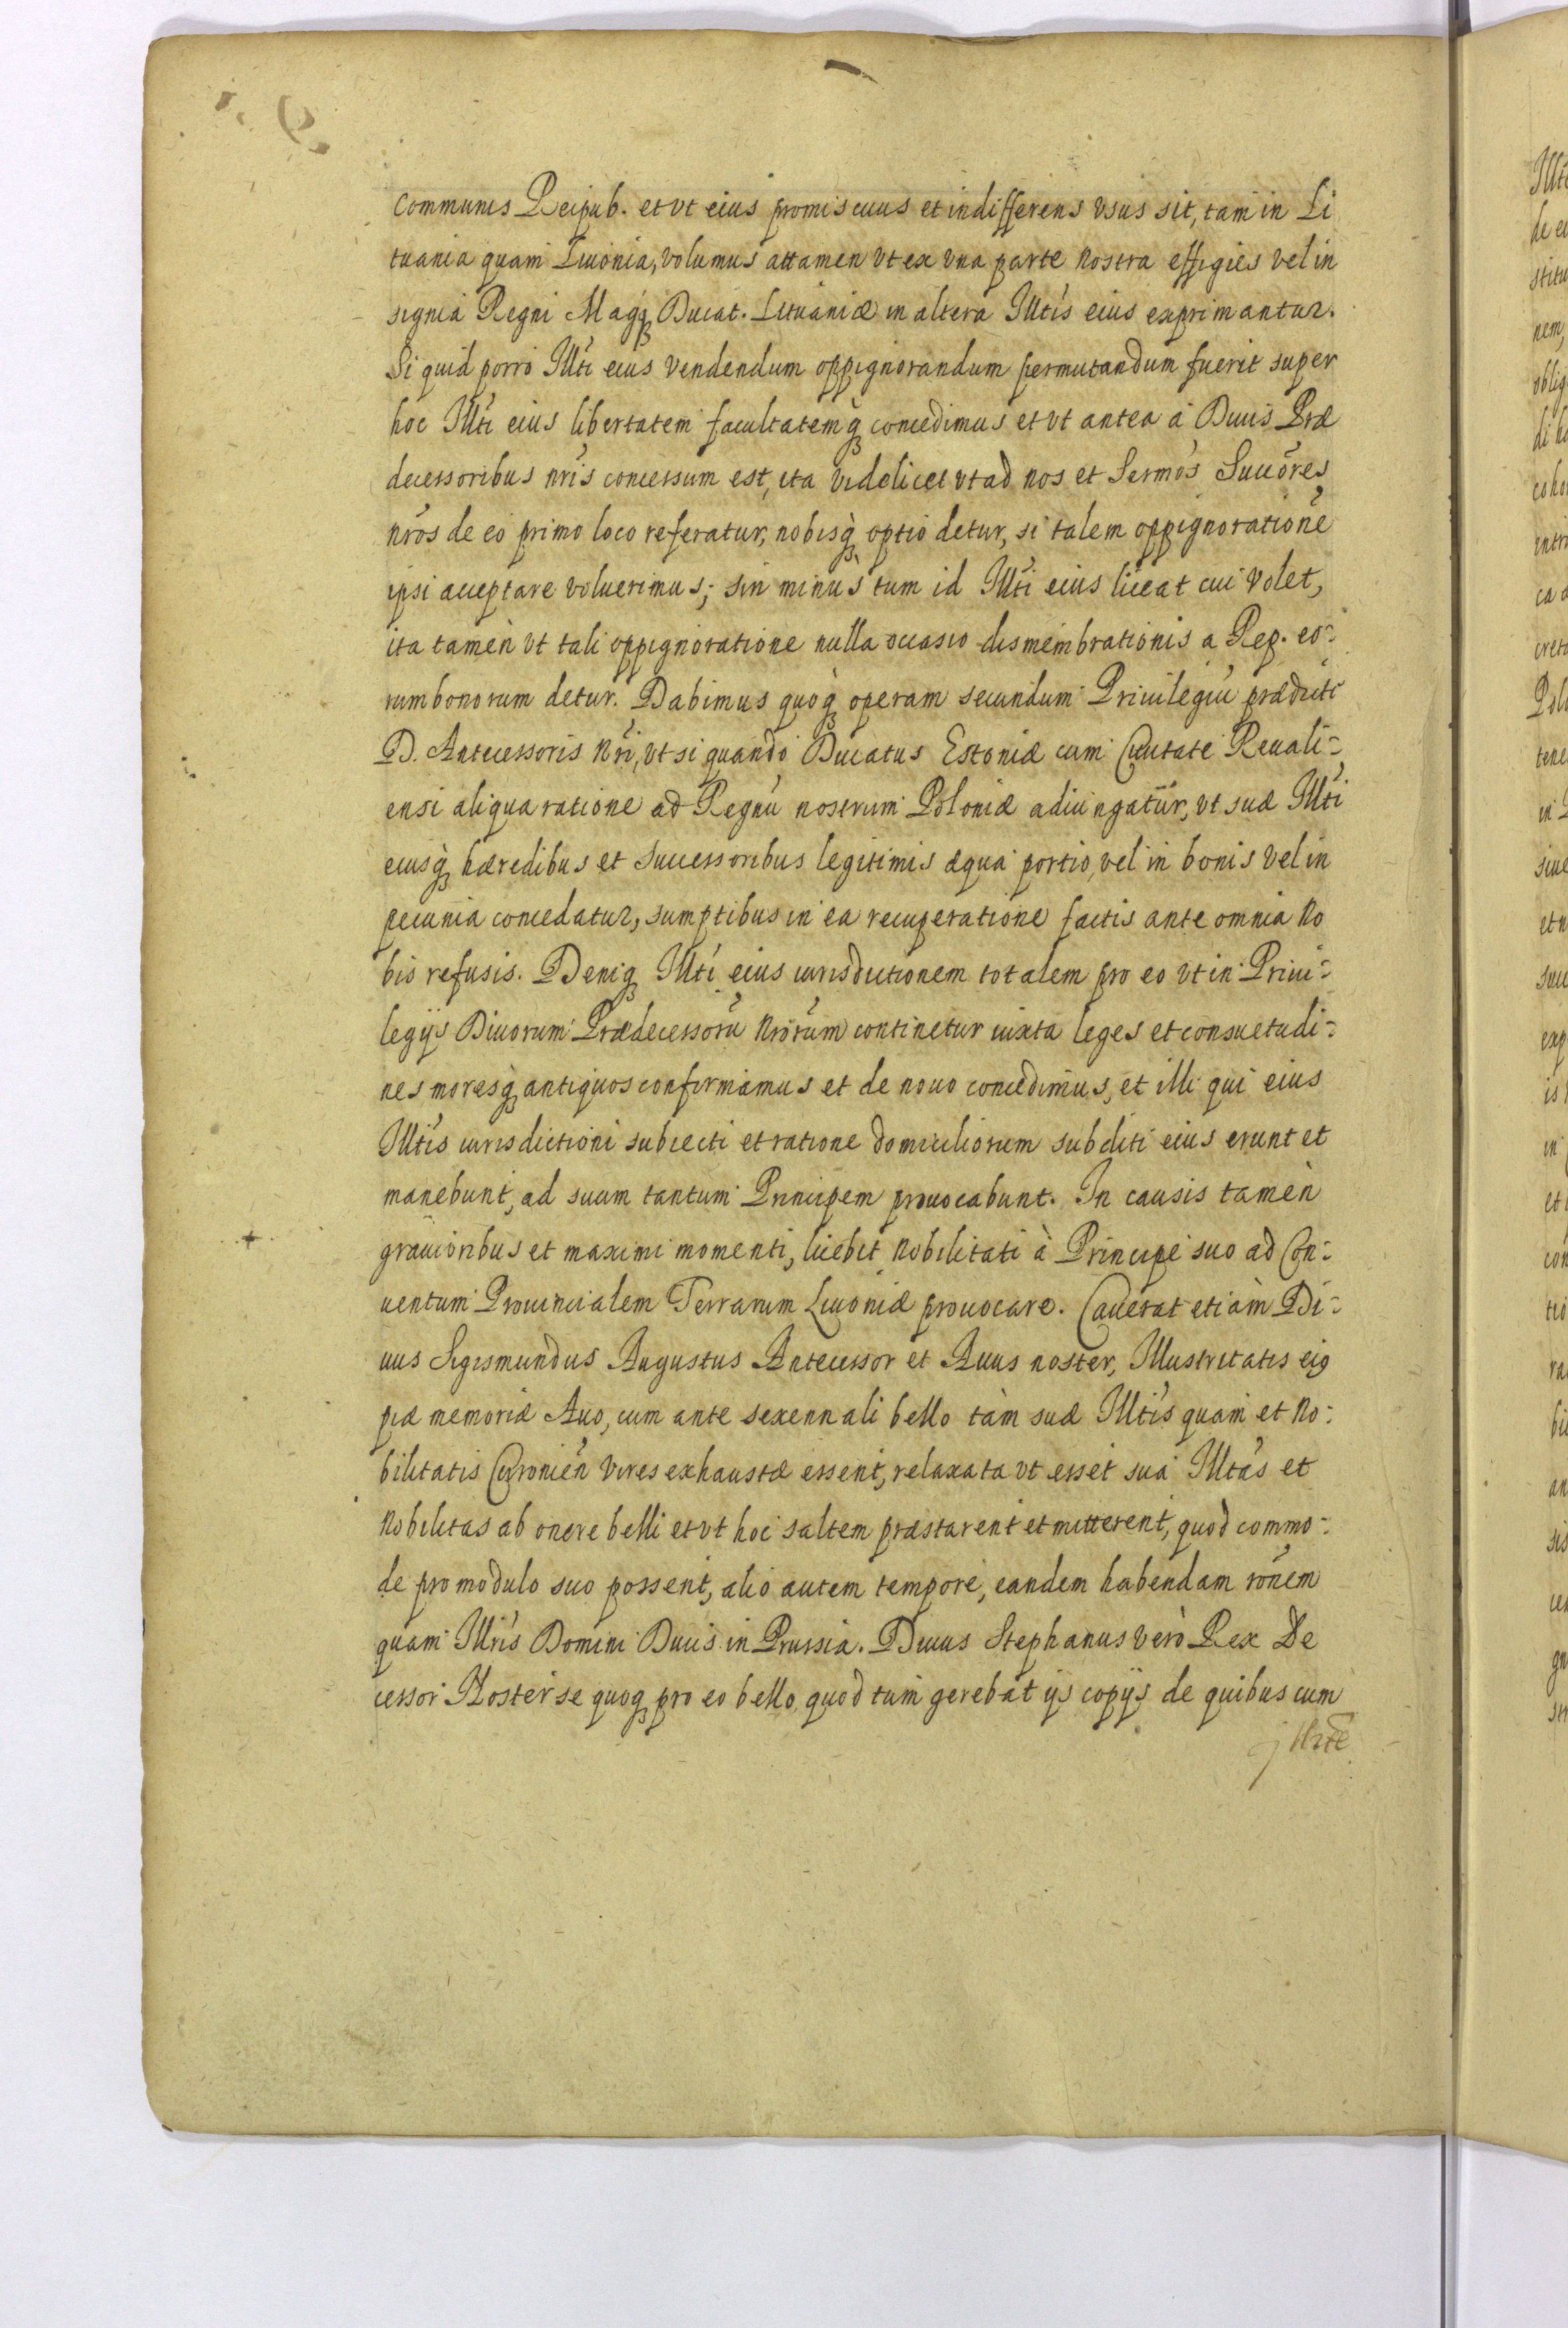 communis Reipub. et vt eius promiscuus et indifferens vsus sit, tam in Li
tuania quam Liuonia, volumus attamen vt ex vna parte nostra effigies vel in
signia Regni Magiq Ducat. Lituaniæ in altera Illtis eius exprimantur.
Si quid porro Illti eius vendendum oppignorandum permutandum fuerit super
hoc Illti eius libertatem facultatemq concedimus et vt antea à Diuis Præ
decessoribus nris concessum est, ita videlicet vt ad nos et Sermos Succores
nros de eo primo loco referatur, nobisq optio detur, si talem oppignorationē
ipsi acceptare voluerimus; sin minùs tum id Illti eius liceat cui volet,
ita tamèn vt tali oppignoratione nulla occasio dismembrationis a Rep. eo=
rum bonorum detur. Dabimus quoq operam secundum Priuilegiū prædicti
D. Antecessoris Nri, vt si quando Ducatus Estoniæ cum Ciuitate Reuali=
ensi aliqua ratione ad Regnū nostrum Poloniæ adiungatur, vt suæ Illti
eiusq hæredibus et successoribus legitimis æqua portio, vel in bonis vel in
pecunia concedatur, sumptibus in ea recuperatione factis ante omnia No
bis refusis. Deniq Illti eius iurisdictionem totalem pro eo vt in Priui=
legijs Diuorum Prædecessorū Nrorum continetur iuxta leges et consuetudi=
nes moresq antiquos confirmamus et de nouo concedimus, et illi qui eius
Illtis iurisdictioni subiecti et ratione domiciliorum subditi eius erunt et
manebunt, ad suum tantum Principem prouocabunt. In causis tamèn
grauioribus et maximi momenti, licebit Nobilitati à Principe suo ad Con=
uentum Prouincialem Terrarum Liuoniæ prouocare. Cauerat etiàm Di=
uus Sigismundus Augustus Antecessor et Auus noster, Illustritatis eig
piæ memoriæ Auo, cum ante sexennali bello tàm suæ Illtis quam et No=
bilitatis Curonien vires exhaustæ essent, relaxata vt esset sua Illtas et
Nobilitas ab onere belli et vt hoc saltem præstarent et mitterent, quod commo=
de pro modulo suo possent, alio autem tempore, eandem habendam ronem
quam Illris Domini Ducis in Prussia. Diuus Stephanus verò Rex De
cessor Noster se quoq pro eo bello quod tum gerebat ijs copijs de quibus cum